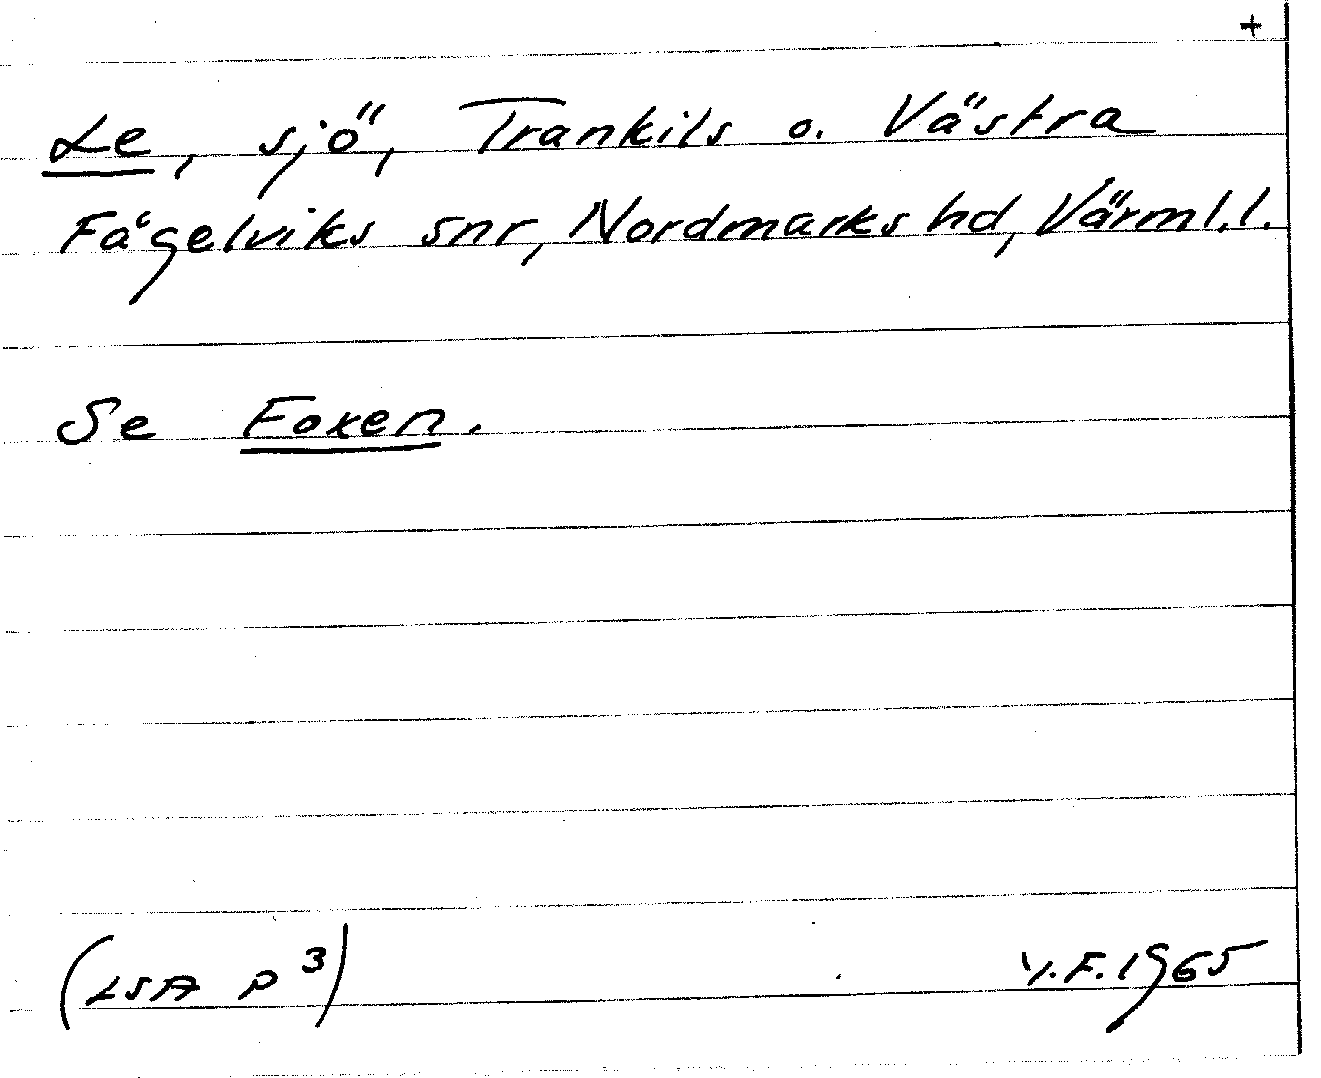 +
Le, sjö, Trankils o. Västra
Fågelviks snr, Nordmarks hd, Värml.l.
Se Foxen.
(LSA P³)
Y.F.1965